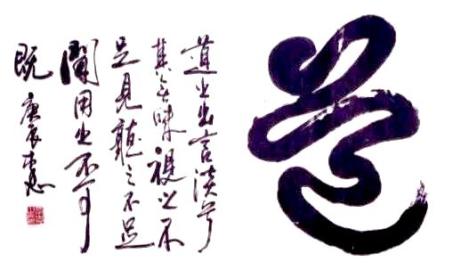 道
道之出言淡乎
其无味視之不
足見聽之不足
聞用之不可
既 庚辰